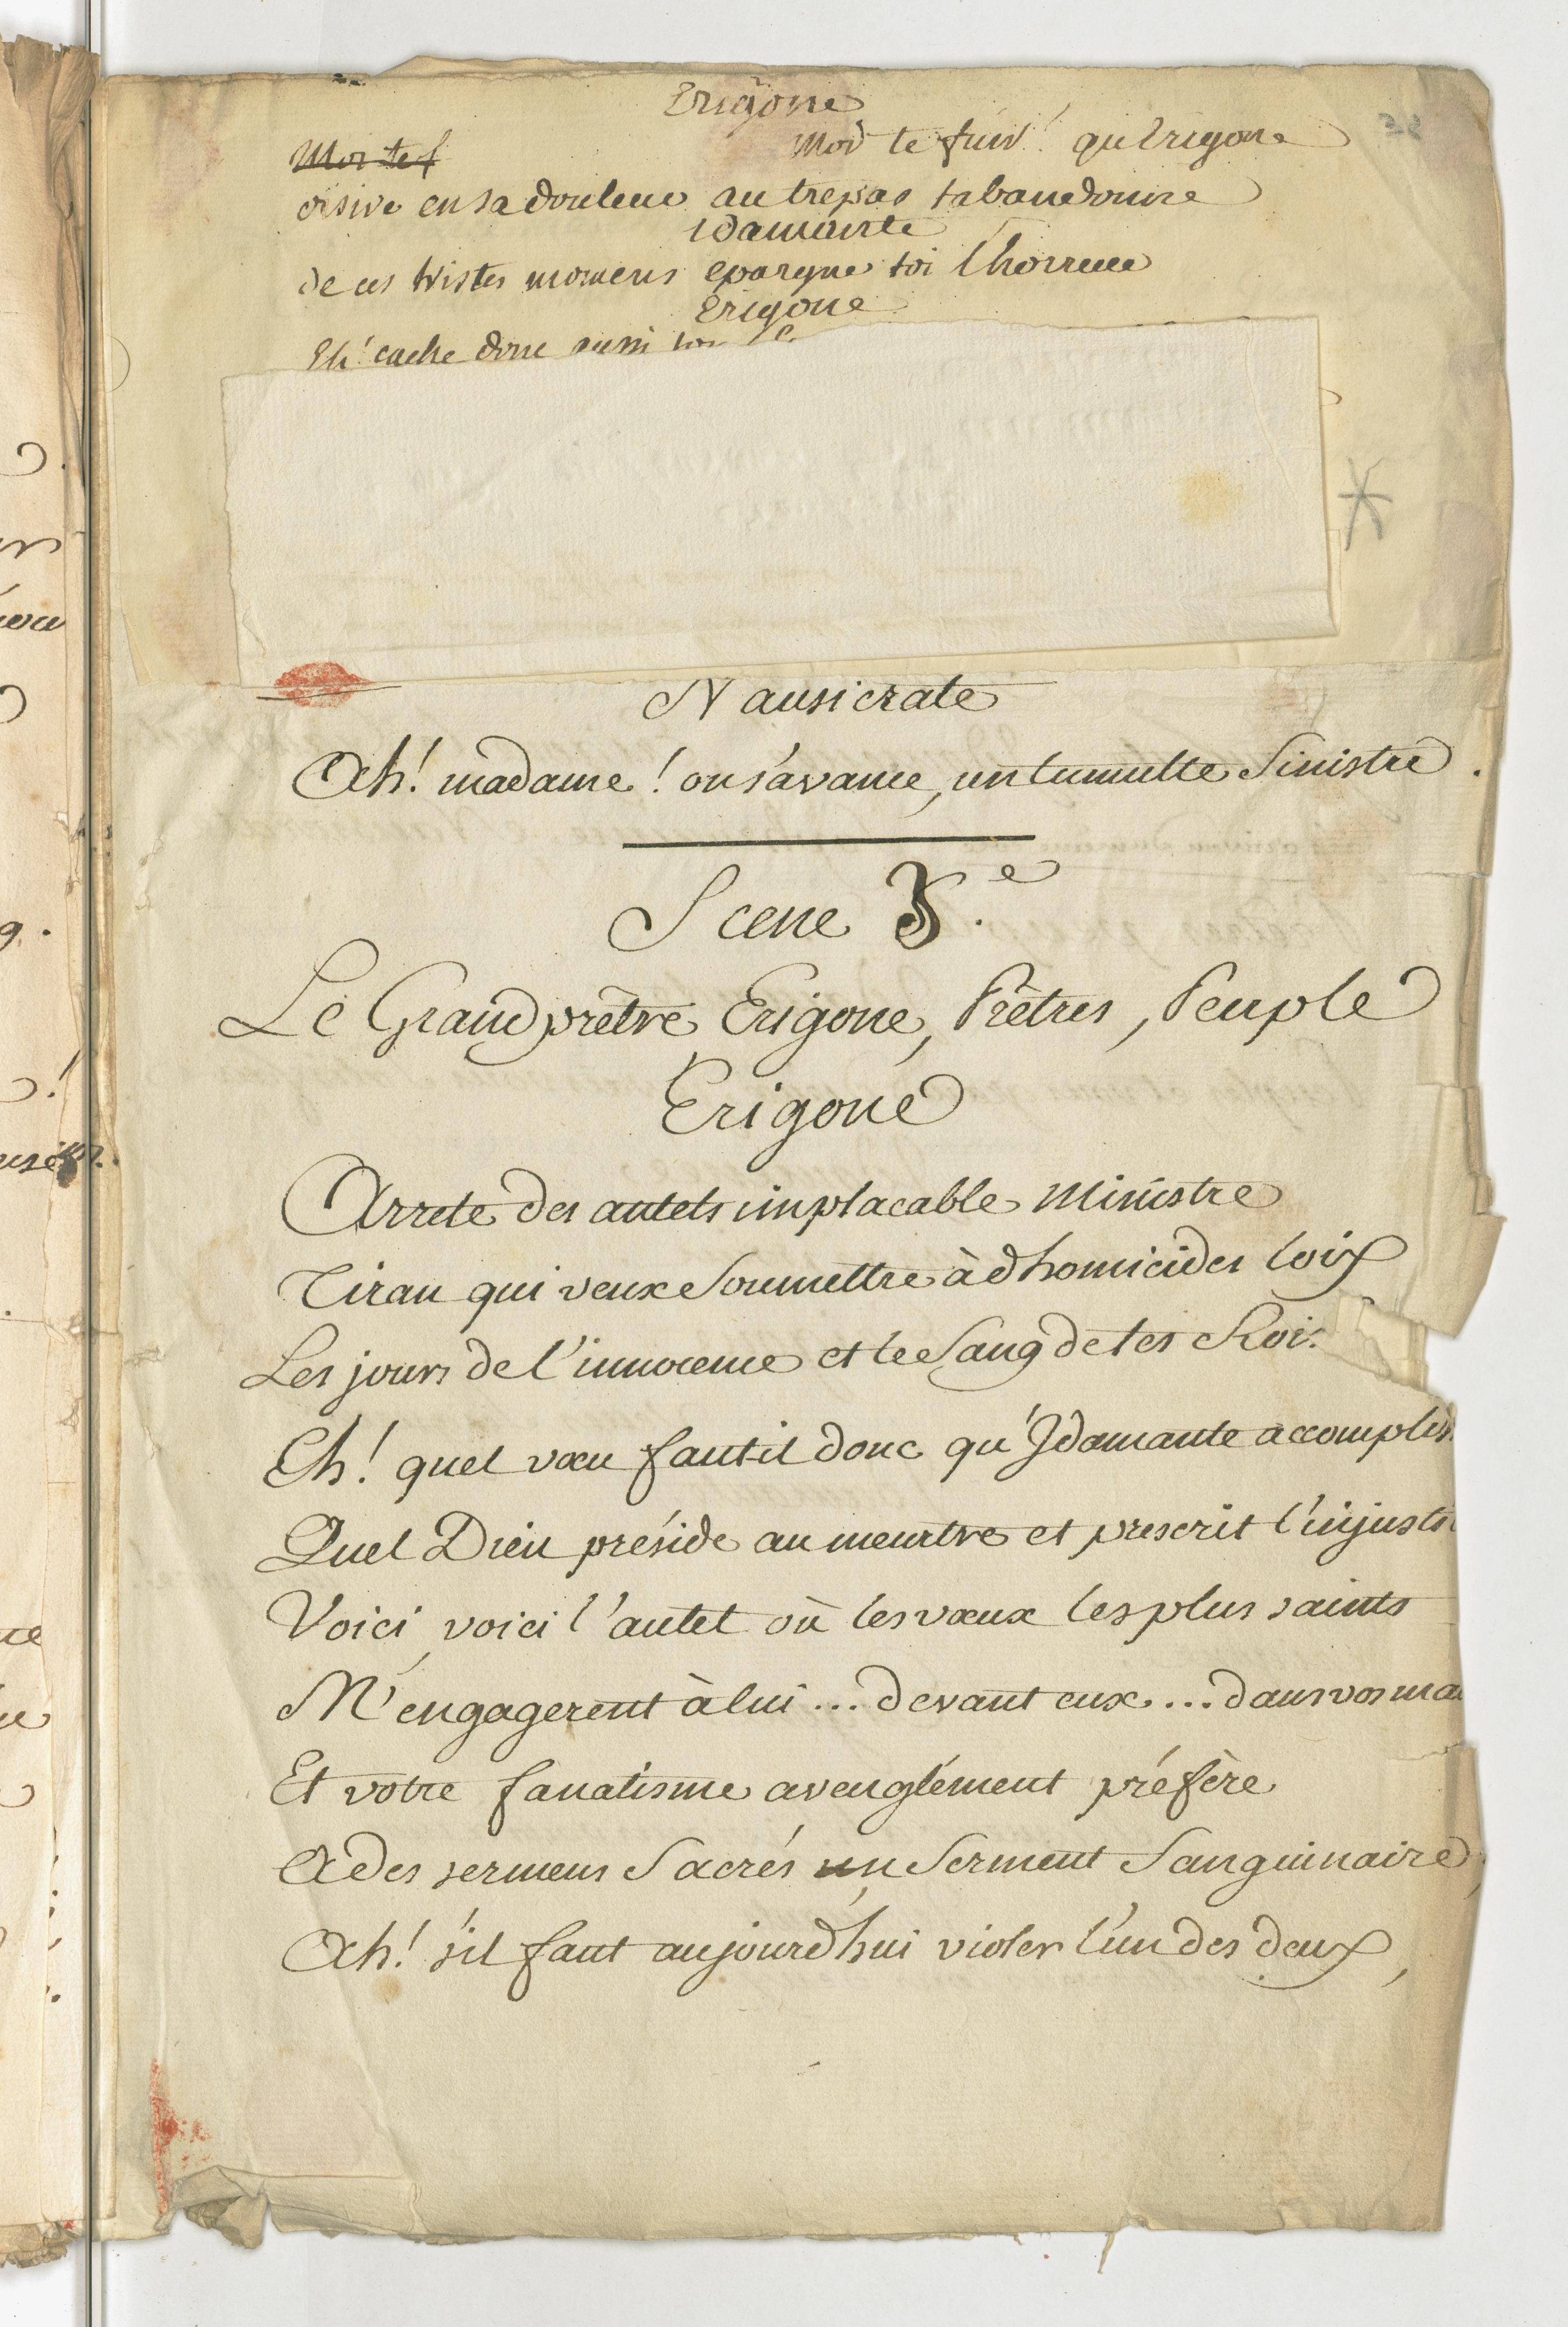 Erigone
Moi te f
Moi te fuir! qu'Erigone
oisive en sa douleur au trepas tabandonne
idamante
de ces tristes momens epargne toi l'horreur
Erigone
Eh! cache donc aussi
Nausicrate
Ah! madame! on s'avance, un tumulte Sinistre.
Scene 3.e
Le Grand prêtre Erigone, Prêtres, Peuple
Erigone
Arrete des autels implacable Ministre
Tiran qui veux Soumettre à d'homicides loix
Les jours de l'innocence et le Sang de tes Rois
Eh! quel vœu faut-il donc qu'Idamante accompliss
Quel Dieu préside au meurtre et prescrit l'injusti
Voici, voici l'autel où les vœux les plus saints
M'engagerent à lui... devant eux... dans vos mai
Et votre fanatisme aveuglément préfère
A des sermens Sacrés un Serment Sanguinaire,
Ah! s'il faut aujourd'hui violer l'un des deux,